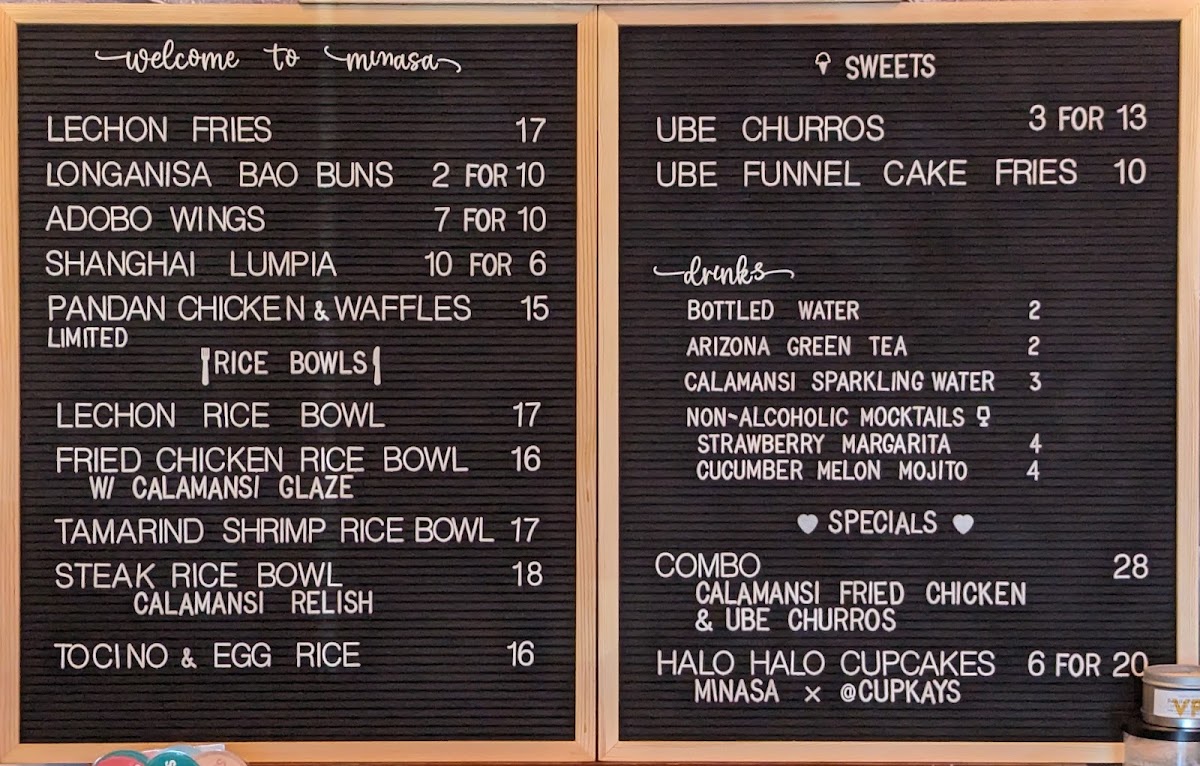 welcome to minasa
LECHON FRIES 17
LONGANISA BAO BUNS 2 FOR 10
ADOBO WINGS 7 FOR 10
SHANGHAI LUMPIA 10 FOR 6
PANDAN CHICKEN & WAFFLES 15
LIMITED
RICE BOWLS
LECHON RICE BOWL 17
FRIED CHICKEN RICE BOWL 16
W/ CALAMANSI GLAZE
TAMARIND SHRIMP RICE BOWL 17
STEAK RICE BOWL 18
CALAMANSI RELISH
TOCINO & EGG RICE 16
SWEETS
UBE CHURROS 3 FOR 13
UBE FUNNEL CAKE FRIES 10
drinks
BOTTLED WATER 2
ARIZONA GREEN TEA 2
CALAMANSI SPARKLING WATER 3
NON-ALCOHOLIC MOCKTAILS
STRAWBERRY MARGARITA 4
CUCUMBER MELON MOJITO 4
SPECIALS
COMBO 28
CALAMANSI FRIED CHICKEN
& UBE CHURROS
HALO HALO CUPCAKES 6 FOR 20
MINASA × @CUPKAYS